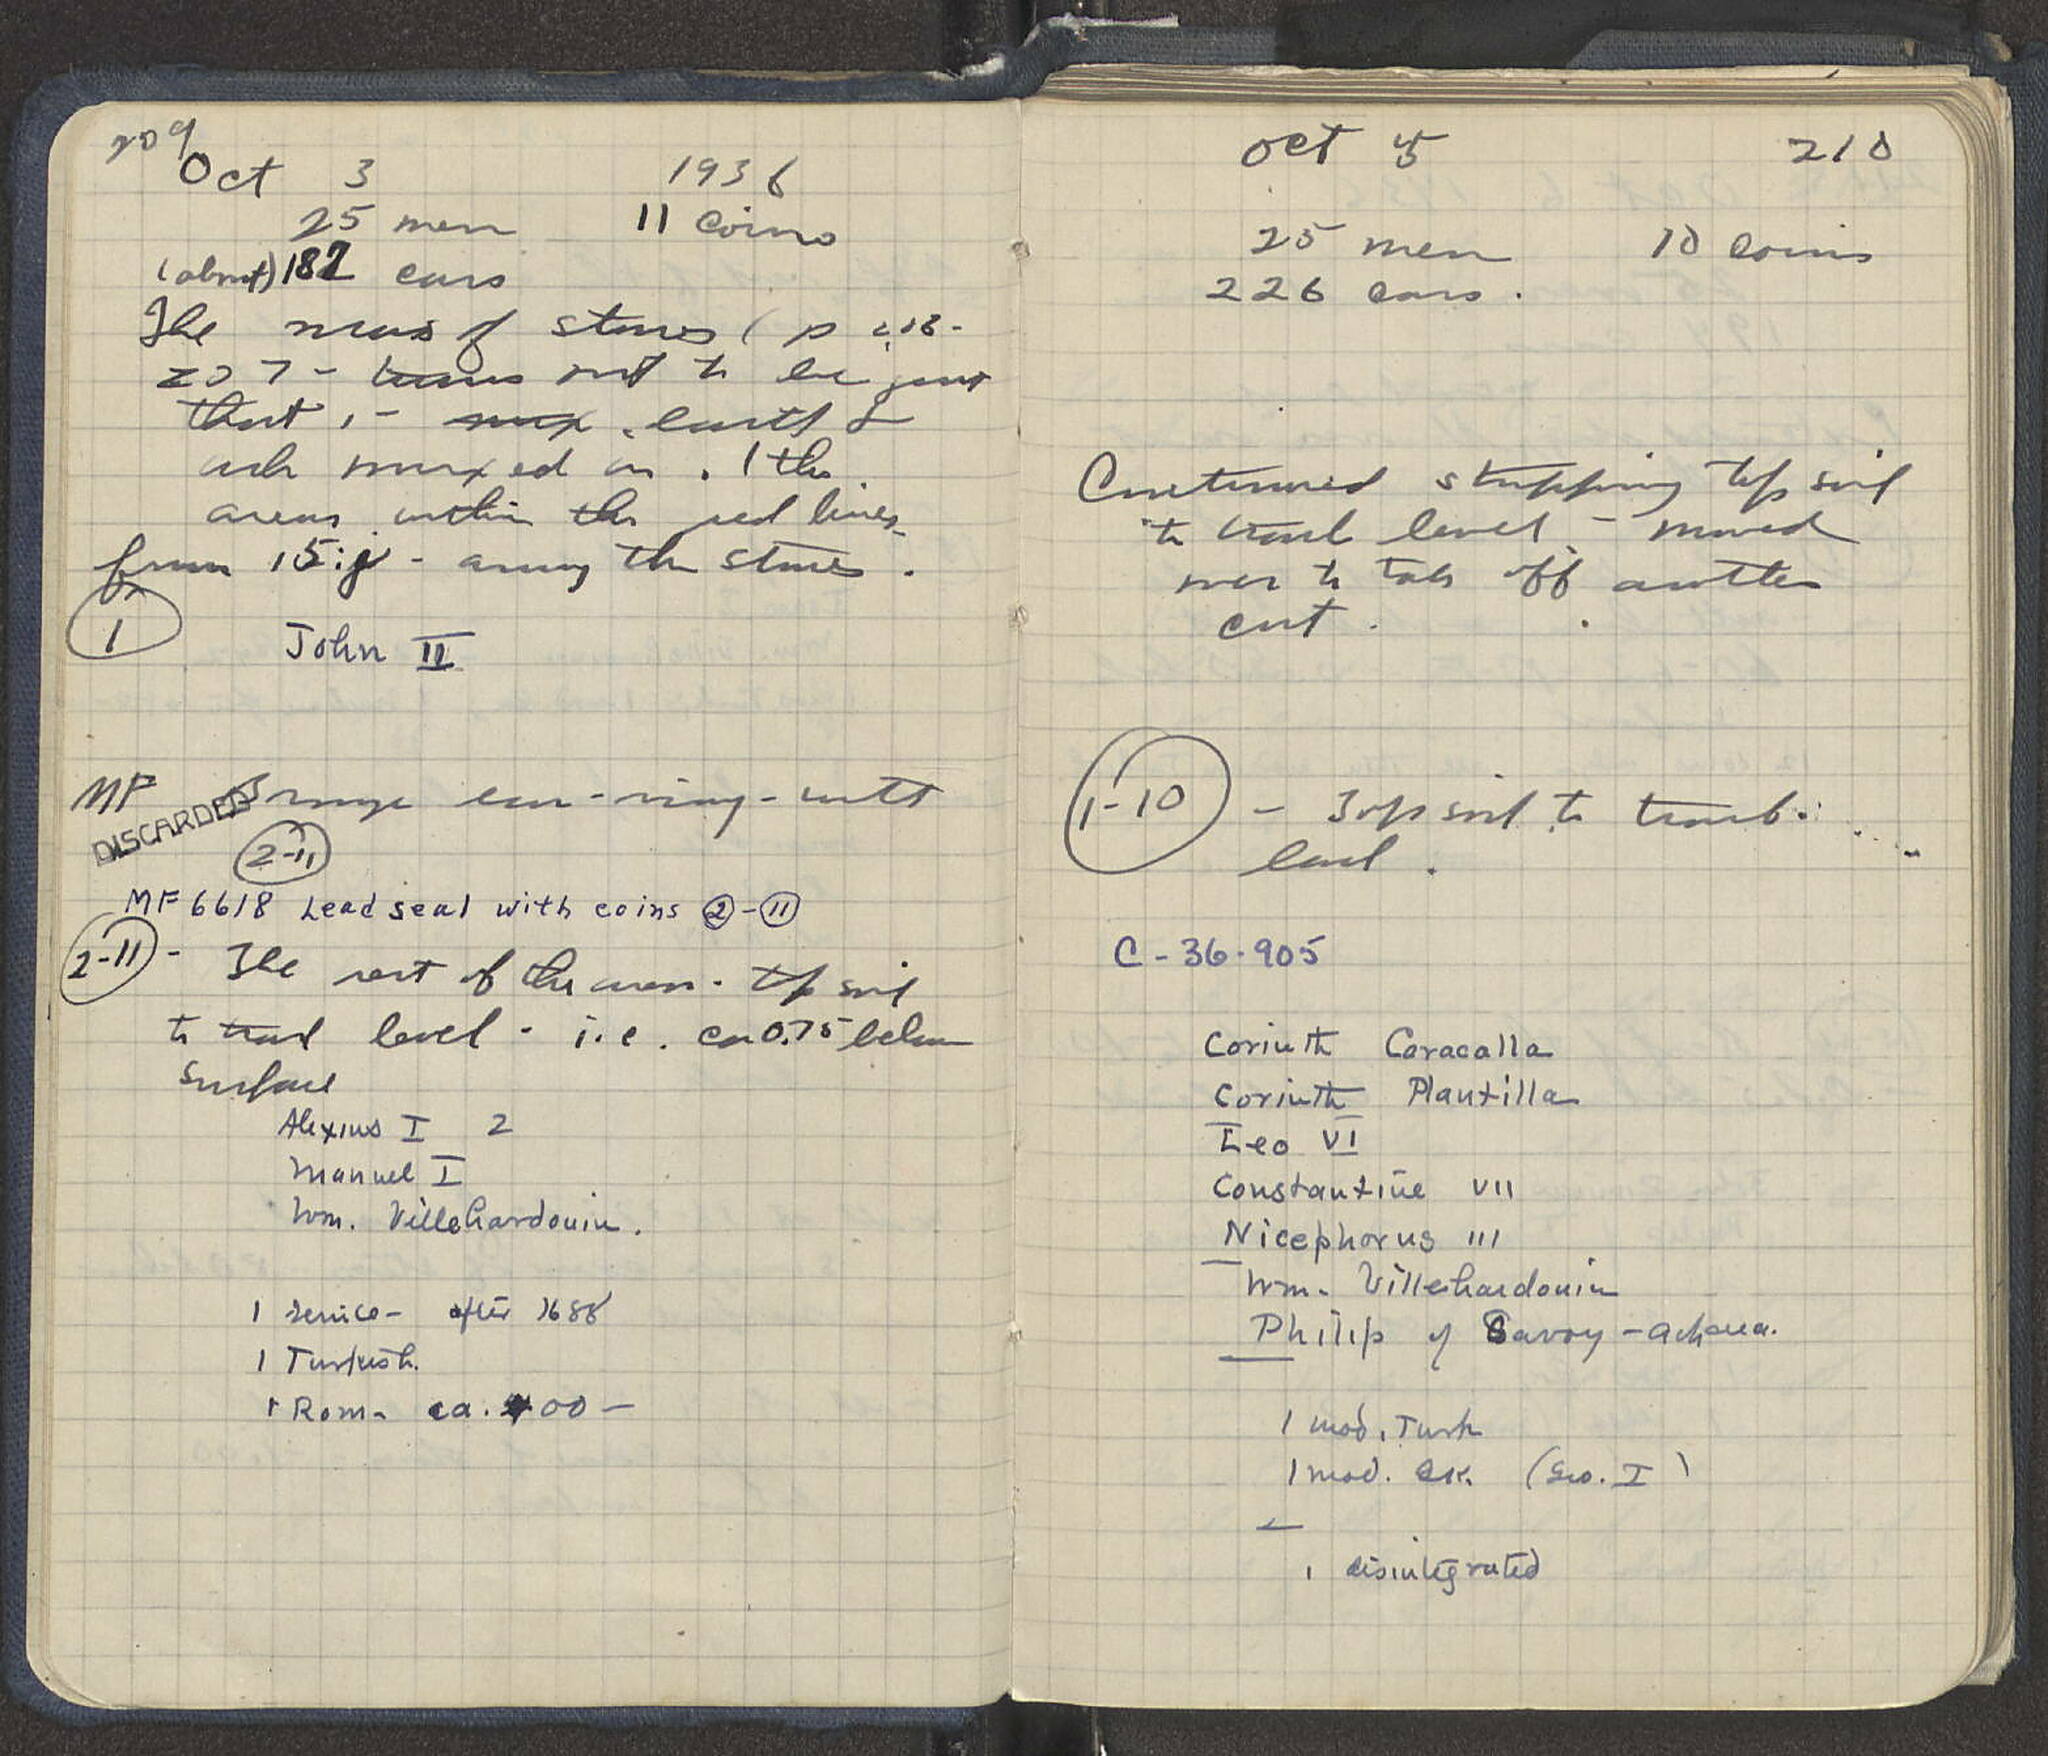 209
Oct 3 1936
25 men 11 coins
(about) 187 cars
The mass of stones (p 208-
207 - turns out to be just
that, - earth &
ash mixed in. / the
areas within the red lines
from 15:j - among the stones.
1
John II
MF Bronze ear-ring - with
DISCARDED
2-11
MF 6618 Lead seal with coins 2 - 11
2-11 - The rest of the area. top soil
to track level - i.e. ca 0.75 below
surface
Alexius I 2
Manuel I
Wm. Villehardouin.
1 Venice - after 1688
1 Turkish.
1 Rom. ca. 400 -
Oct 5 210
25 men 10 coins
226 cars.
Continued stripping top soil
to track level - moved
over to take off another
cut.
1-10 - Top soil to track
level.
C - 36 - 905
Corinth Caracalla
Corinth Plautilla
Leo VI
Constantine VII
Nicephorus III
Wm. Villehardouin
Philip of Savoy - Achaea.
1 mod. Turk
1 mod. Gk. (Geo. I)
1 disintegrated